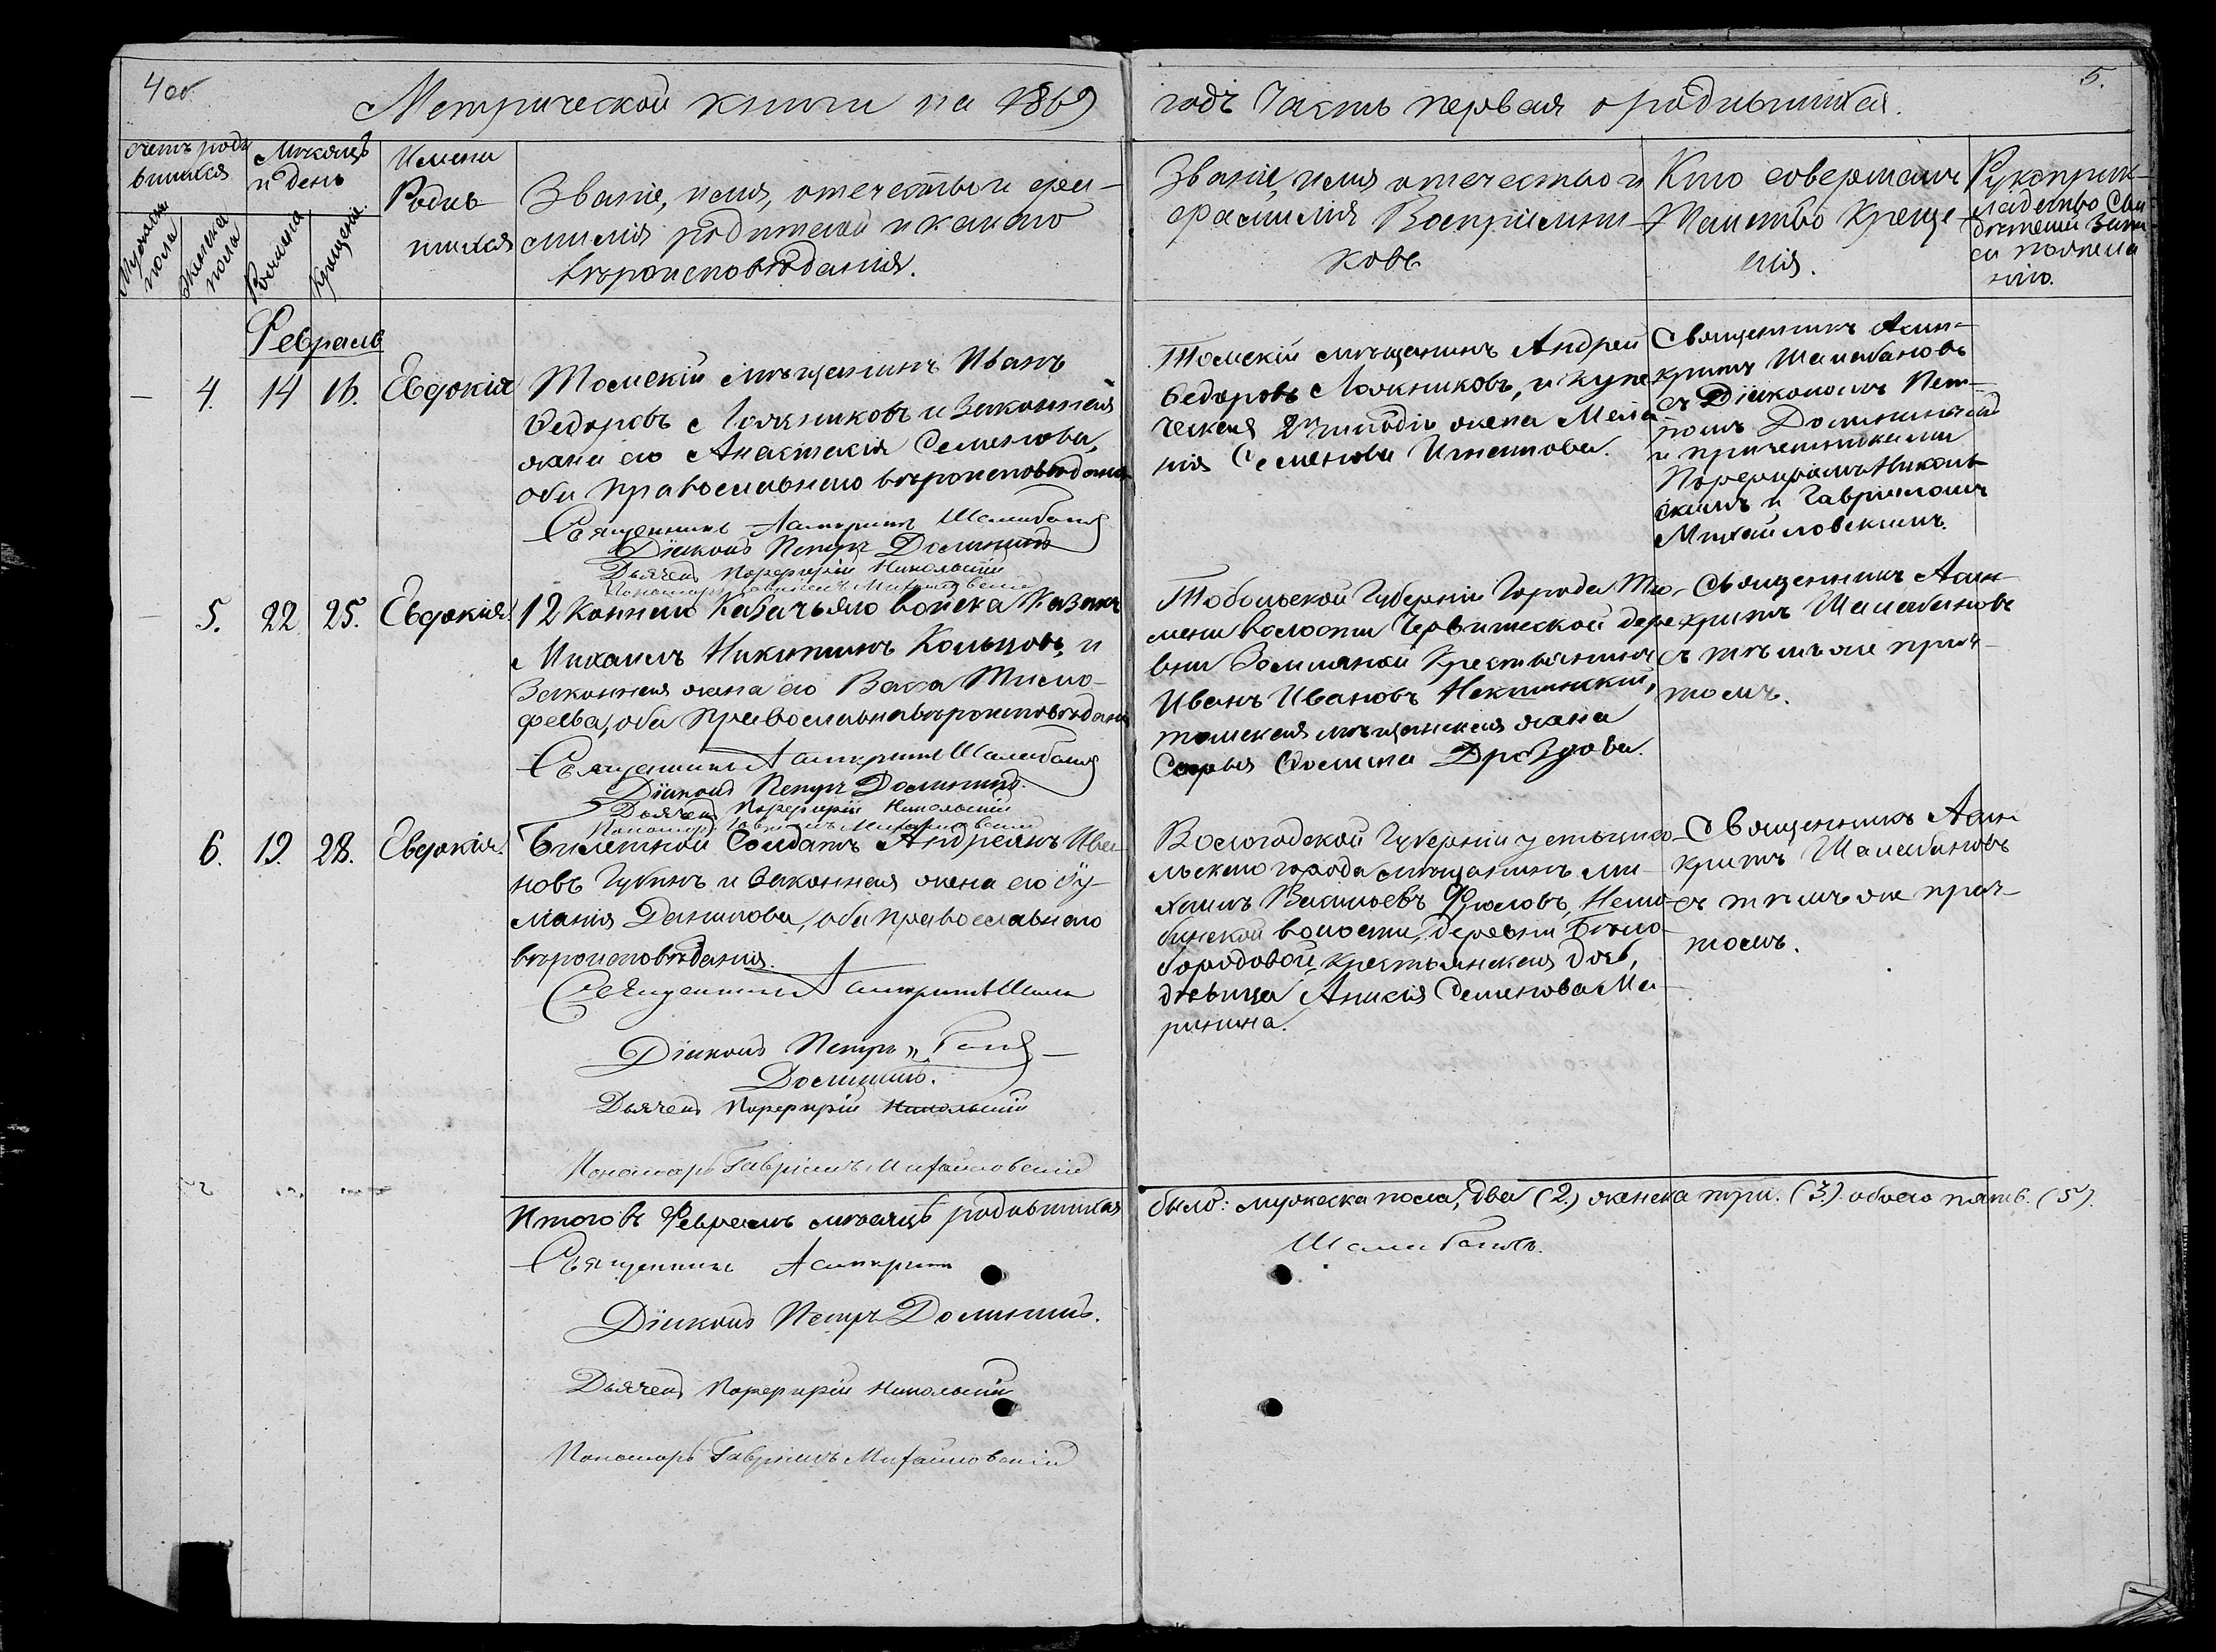 4 об.
5.
Метрической книги на 1869
годъ Часть первая о родившихся.
счетъ роди
вшихся
Мужеска
пола
Женска
пола
Мѣсяцъ
и день
Рожденія
Крещенія.
Имена
Родив
шихся
Званіе, имя, отечество и фа-
милія родителей и какого
вѣроисповѣданія.
Званіе, имя отечество и
фамилія Воспріемни-
ковъ
Кто совершалъ
Таинство Креще-
нія.
Рукоприк-
ладство Сви
дѣтелей запи
си по желa
нію.
Февраль
—
4.
14
16.
Евдокія
Томскій мѣщанинъ Иванъ
Федоровъ Ложниковъ и законная
жена его Анастасія Семенова,
оба православнаго вѣроисповѣданія
Священникъ Асинкритъ Шалабановъ
Діаконъ Петръ Домининъ
Дьячекъ Порфирій Никольскій
Пономарь Гавріилъ Михайловскій
Томскій мѣщанинъ Андрей
Федоровъ Ложниковъ, и Купе
ческая 2й гильдіи жена Мела
нія Семенова Игнатова.
Священникъ Асин-
критъ Шалабановъ
съ Діакономъ Пет-
ромъ Домининымъ
и причетниками
Порфиріемъ Николь
скимъ и Гавріиломъ
Михайловскимъ.
—
5.
22
25.
Евдокія.
12 Коннаго Казачьяго войска Казакъ
Михаилъ Никитинъ Кольцовъ, и
Законная жена его Васса Тимо-
феева, оба Православнаго вѣроисповѣданія
Священникъ Асинкритъ Шалабановъ
Діаконъ Петръ Домининъ.
Дьячекъ Порфирій Никольскій
Пономарь Гавріилъ Михайловскій
Тобольской Губерніи Города Тю-
мени волости Червишевской дере
вни Крестьянинъ
Иванъ Ивановъ
томская мѣщанская жена
Софья Фомина Дроздова.
Священникъ Асин-
критъ Шалабановъ
съ тѣмъ же прич-
томъ.
6.
19.
28.
Евдокія.
Билетной Солдатъ Андреянъ Ива
новъ Губинъ и законная жена его Ѳу-
манія Данилова, оба православнаго
вѣроисповѣданія.
Священникъ Асинкритъ Шала
Діаконъ Петръ „ бановъ —
Домининъ.
Дьячекъ Порфирій Никольскій
Пономарь Гавріилъ Михайловскій
Вологодской Губерніи устьысо-
льскаго города мѣщанинъ Ми-
хаилъ Васильевъ Фроловъ, Нелю-
бинской волости, деревни Бѣло-
бородовой, крестьянская дочь,
дѣвица Анисія Семенова Ма-
ринина.
Священникъ Асин
критъ Шалабановъ
съ тѣмъ же прич-
томъ.
Итого въ Февралѣ мѣсяцѣ родившихся
было: мужеска пола, два (2) женска три. (3). обоего пять. (5).
Священникъ Асинкритъ
Шалабановъ.
Діаконъ Петръ Домининъ.
Дьячекъ Порфирій Никольскій
Пономарь Гавріилъ Михайловскій